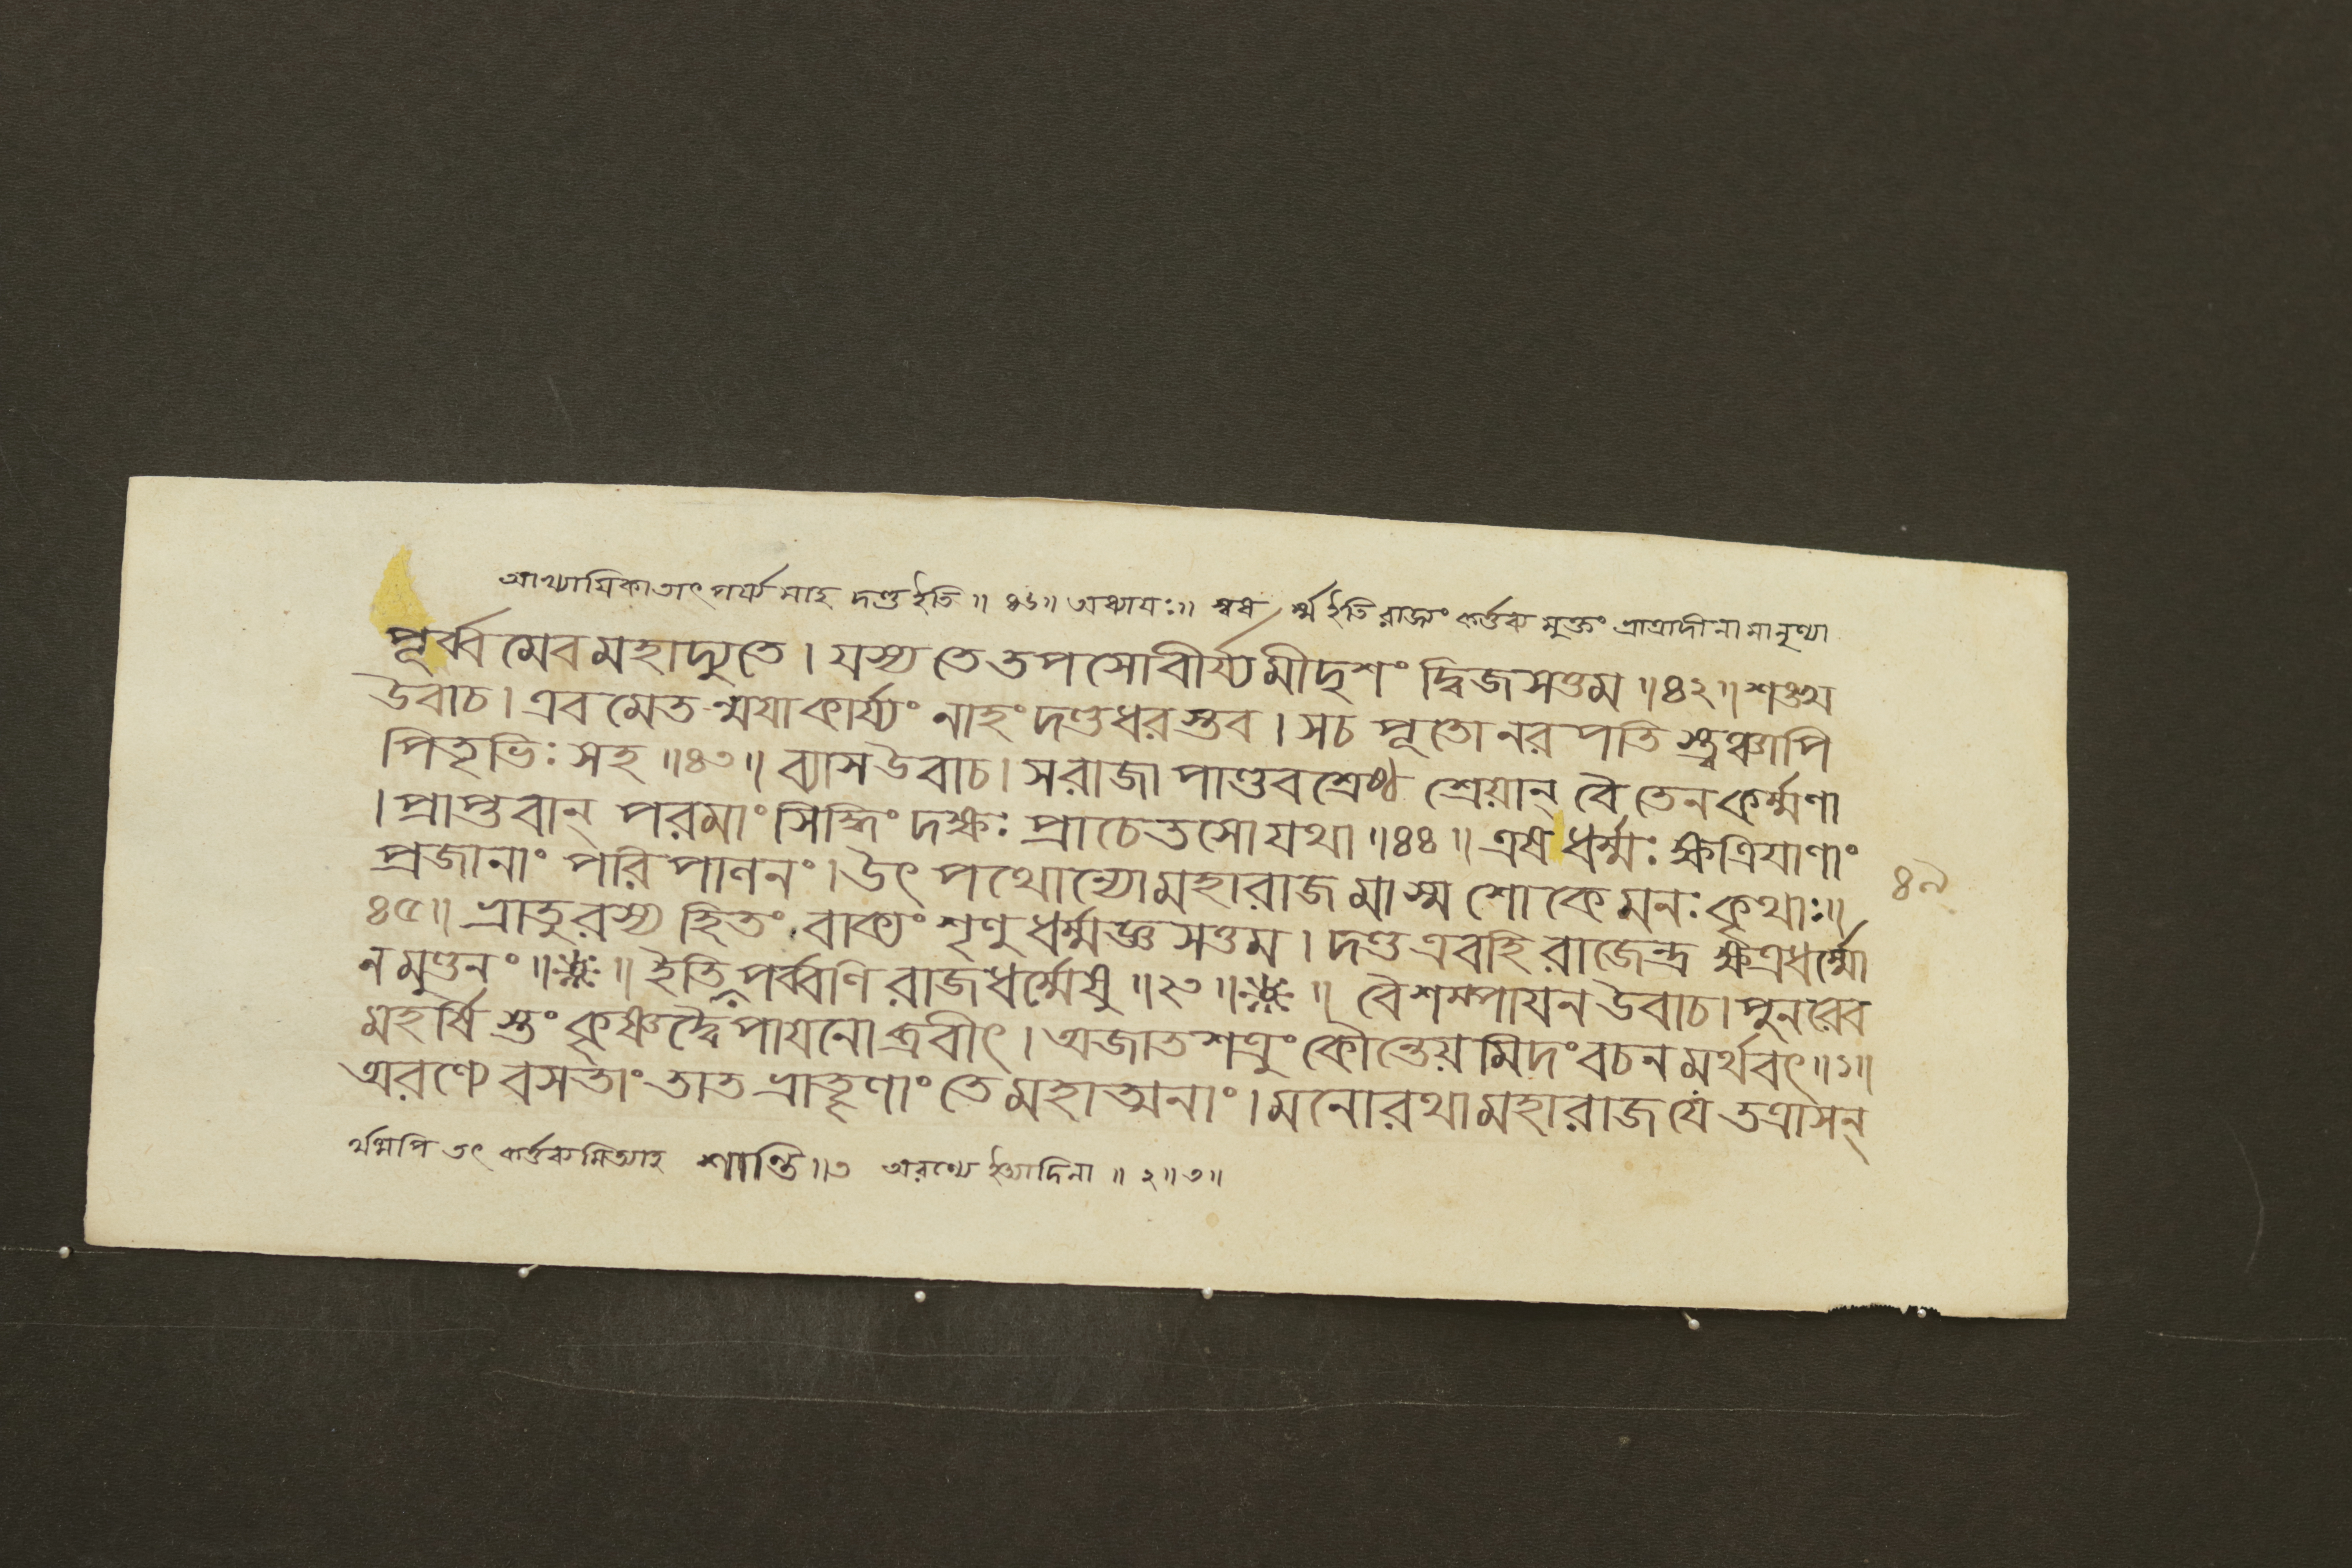 আখ্যায়িকাতাৎপর্য্যমাহ দণ্ড ইতি ॥ ৪৬॥ অধ্যায়ঃ॥ স্বধর্ম্ম ইতি রাজ্যং কর্ত্তব্যমুক্তং ভ্রাত্রাদীনামানৃণ্যা
পূর্ব্বমেবমহাদ্যুতে। যস্য তে তপসোবীর্য্যমীদৃশং দ্বিজসত্তম ॥৪২॥ শঙ্খ
উবাচ। এবমেতন্ময়াকার্য্যং নাহং দণ্ডধরস্তব। সচ পূতোনরপতিস্ত্বঞ্চাপি
পিতৃভিঃ সহ ॥৪৩॥ ব্যাস উবাচ। সরাজা পাণ্ডবশ্রেষ্ঠ শ্রেয়ান্ বৈ তেনকর্ম্মণা
। প্রাপ্তবান্ পরমাং সিদ্ধিং দক্ষঃ প্রাচেতসোযথা ॥৪৪॥ এষধর্ম্মঃ ক্ষত্রিয়াণাং
প্রজানাং পরিপালনং। উৎপথোন্যোমহারাজ মাস্ম শোকে মনঃ কৃথাঃ॥
৪৫॥ ভ্রাতুরস্য হিতং বাক্যং শৃণু ধর্ম্মজ্ঞসত্তম। দণ্ড এবহি রাজেন্দ্র ক্ষত্রধর্ম্মো
ন মুণ্ডনং ॥ ॥ ইতি পর্ব্বণি রাজধর্ম্মেষু ॥২৩॥ ॥ বৈশম্পায়ন উবাচ। পুনরেব
মহর্ষিস্তং কৃষ্ণদ্বৈপায়নোব্রবীৎ। অজাতশত্রুং কৌন্তেয়মিদং বচনমর্থবৎ॥১॥
অরণ্যে বসতাং তাত ভ্রাতৄণাং তে মহাত্মনাং। মনোরথামহারাজ যে তত্রাসন্
র্থমপি তৎ কর্ত্তব্যমিত্যাহ শান্তি॥৩ অরণ্যে ইত্যাদিনা ॥ ২॥ ৩॥
৪৯